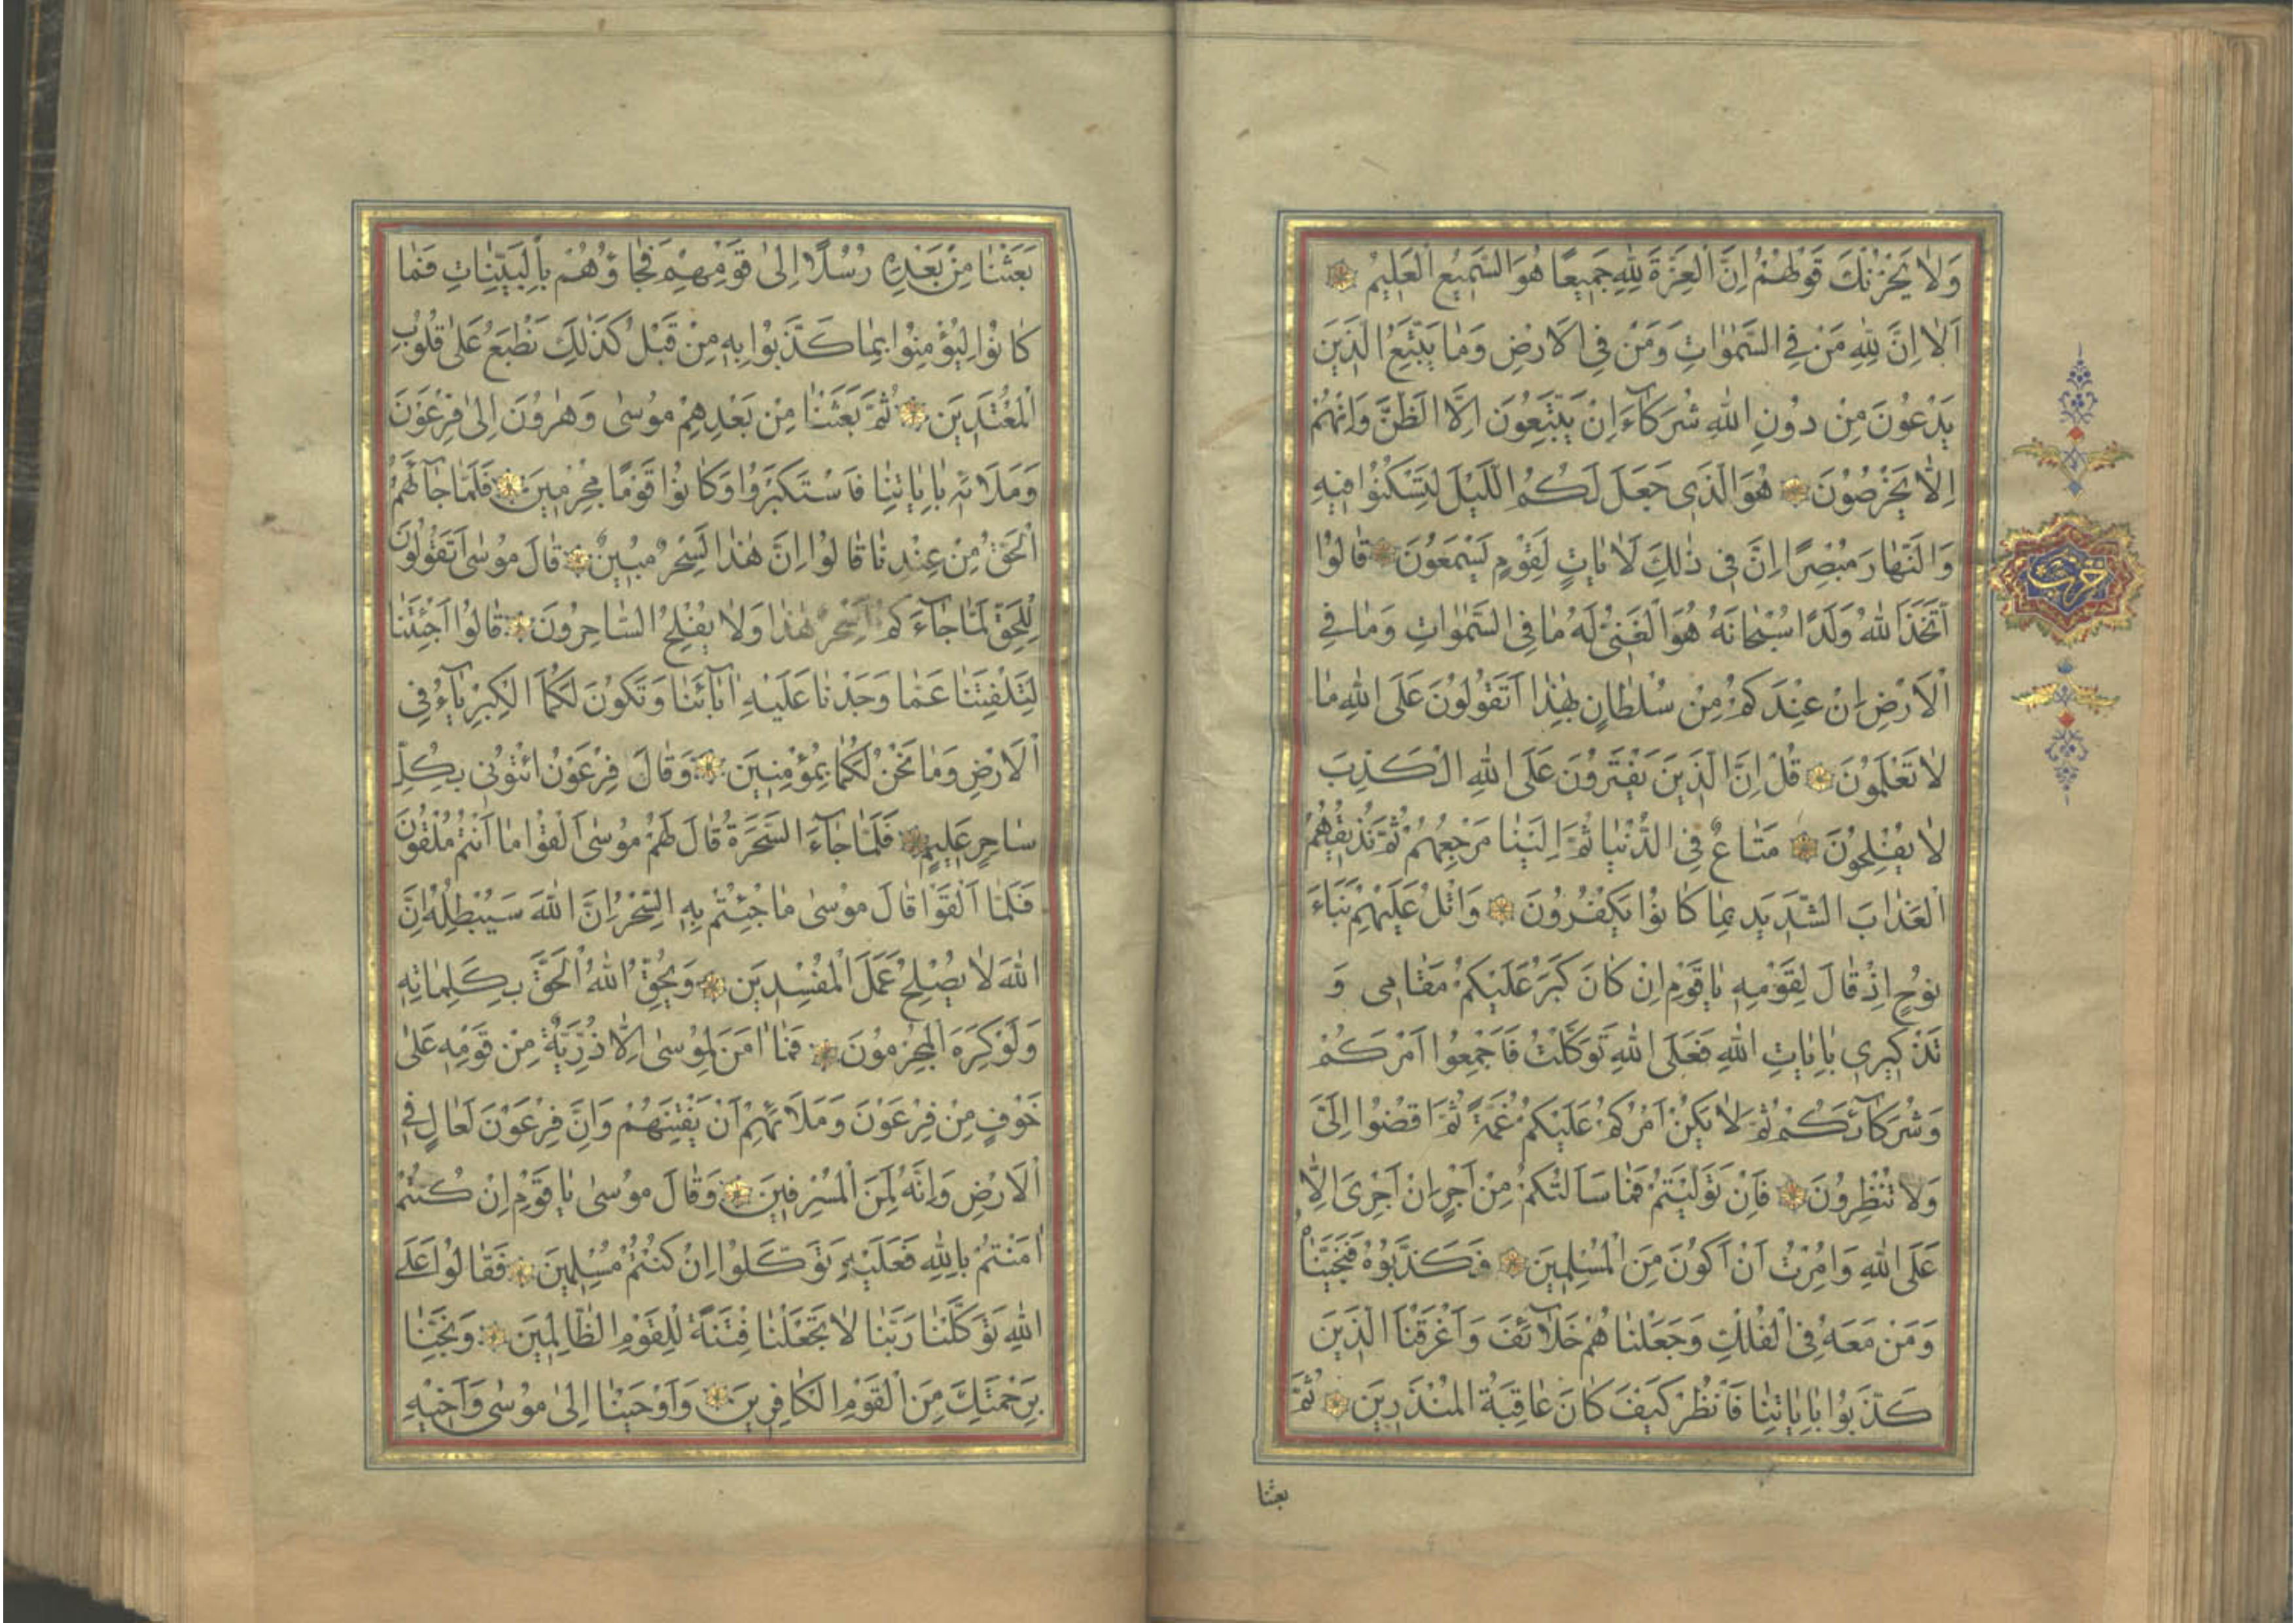 وَلَا يَحْزُنْكَ قَوْلُهُمْ اِنَّ الْعِزَّةَ لِلّٰهِ جَمِيعًا هُوَ السَّمِيعُ الْعَلِيمُ
اَلَا اِنَّ لِلّٰهِ مَنْ فِي السَّمٰوَاتِ وَمَنْ فِي الْاَرْضِ وَمَا يَتَّبِعُ الَّذِينَ
يَدْعُونَ مِنْ دُونِ اللّٰهِ شُرَكَآءَ اِنْ يَتَّبِعُونَ اِلَّا الظَّنَّ وَاِنْ هُمْ
اِلَّا يَخْرُصُونَ هُوَ الَّذِي جَعَلَ لَكُمُ اللَّيْلَ لِتَسْكُنُوا فِيهِ
وَالنَّهَارَ مُبْصِرًا اِنَّ فِي ذٰلِكَ لَاٰيَاتٍ لِقَوْمٍ يَسْمَعُونَ قَالُوا
اتَّخَذَ اللّٰهُ وَلَدًا سُبْحَانَهُ هُوَ الْغَنِيُّ لَهُ مَا فِي السَّمٰوَاتِ وَمَا فِي
الْاَرْضِ اِنْ عِنْدَكُمْ مِنْ سُلْطَانٍ بِهٰذَا اَتَقُولُونَ عَلَى اللّٰهِ مَا
لَا تَعْلَمُونَ قُلْ اِنَّ الَّذِينَ يَفْتَرُونَ عَلَى اللّٰهِ الْكَذِبَ
لَا يُفْلِحُونَ مَتَاعٌ فِي الدُّنْيَا ثُمَّ اِلَيْنَا مَرْجِعُهُمْ ثُمَّ نُذِيقُهُمُ
الْعَذَابَ الشَّدِيدَ بِمَا كَانُوا يَكْفُرُونَ وَاتْلُ عَلَيْهِمْ نَبَاَ
نُوحٍ اِذْ قَالَ لِقَوْمِهِ يَا قَوْمِ اِنْ كَانَ كَبُرَ عَلَيْكُمْ مَقَامِي وَ
تَذْكِيرِي بِاٰيَاتِ اللّٰهِ فَعَلَى اللّٰهِ تَوَكَّلْتُ فَاَجْمِعُوا اَمْرَكُمْ
وَشُرَكَآئَكُمْ ثُمَّ لَا يَكُنْ اَمْرُكُمْ عَلَيْكُمْ غُمَّةً ثُمَّ اقْضُوا اِلَيَّ
وَلَا تُنْظِرُونَ فَاِنْ تَوَلَّيْتُمْ فَمَا سَاَلْتُكُمْ مِنْ اَجْرٍ اِنْ اَجْرِيَ اِلَّا
عَلَى اللّٰهِ وَاُمِرْتُ اَنْ اَكُونَ مِنَ الْمُسْلِمِينَ فَكَذَّبُوهُ فَنَجَّيْنَاهُ
وَمَنْ مَعَهُ فِي الْفُلْكِ وَجَعَلْنَاهُمْ خَلَآئِفَ وَاَغْرَقْنَا الَّذِينَ
كَذَّبُوا بِاٰيَاتِنَا فَانْظُرْ كَيْفَ كَانَ عَاقِبَةُ الْمُنْذَرِينَ ثُمَّ
بعثنا
حزب
بَعَثْنَا مِنْ بَعْدِهِ رُسُلًا اِلَى قَوْمِهِمْ فَجَاؤُهُمْ بِالْبَيِّنَاتِ فَمَا
كَانُوا لِيُؤْمِنُوا بِمَا كَذَّبُوا بِهِ مِنْ قَبْلُ كَذٰلِكَ نَطْبَعُ عَلٰى قُلُوبِ
الْمُعْتَدِينَ ثُمَّ بَعَثْنَا مِنْ بَعْدِهِمْ مُوسٰى وَهٰرُونَ اِلٰى فِرْعَوْنَ
وَمَلَائِهِ بِاٰيَاتِنَا فَاسْتَكْبَرُوا وَكَانُوا قَوْمًا مُجْرِمِينَ فَلَمَّا جَآءَهُمُ
الْحَقُّ مِنْ عِنْدِنَا قَالُوا اِنَّ هٰذَا لَسِحْرٌ مُبِينٌ قَالَ مُوسٰى اَتَقُولُونَ
لِلْحَقِّ لَمَّا جَآءَكُمْ اَسِحْرٌ هٰذَا وَلَا يُفْلِحُ السَّاحِرُونَ قَالُوا اَجِئْتَنَا
لِتَلْفِتَنَا عَمَّا وَجَدْنَا عَلَيْهِ اٰبَآئَنَا وَتَكُونَ لَكُمَا الْكِبْرِيَآءُ فِي
الْاَرْضِ وَمَا نَحْنُ لَكُمَا بِمُؤْمِنِينَ وَقَالَ فِرْعَوْنُ ائْتُونِي بِكُلِّ
سَاحِرٍ عَلِيمٍ فَلَمَّا جَآءَ السَّحَرَةُ قَالَ لَهُمْ مُوسٰى اَلْقُوا مَا اَنْتُمْ مُلْقُونَ
فَلَمَّا اَلْقَوْا قَالَ مُوسٰى مَا جِئْتُمْ بِهِ السِّحْرُ اِنَّ اللّٰهَ سَيُبْطِلُهُ اِنَّ
اللّٰهَ لَا يُصْلِحُ عَمَلَ الْمُفْسِدِينَ وَيُحِقُّ اللّٰهُ الْحَقَّ بِكَلِمَاتِهِ
وَلَوْ كَرِهَ الْمُجْرِمُونَ فَمَا اٰمَنَ لِمُوسٰى اِلَّا ذُرِّيَّةٌ مِنْ قَوْمِهِ عَلٰى
خَوْفٍ مِنْ فِرْعَوْنَ وَمَلَائِهِمْ اَنْ يَفْتِنَهُمْ وَاِنَّ فِرْعَوْنَ لَعَالٍ فِي
الْاَرْضِ وَاِنَّهُ لَمِنَ الْمُسْرِفِينَ وَقَالَ مُوسٰى يَا قَوْمِ اِنْ كُنْتُمْ
اٰمَنْتُمْ بِاللّٰهِ فَعَلَيْهِ تَوَكَّلُوا اِنْ كُنْتُمْ مُسْلِمِينَ فَقَالُوا عَلَى
اللّٰهِ تَوَكَّلْنَا رَبَّنَا لَا تَجْعَلْنَا فِتْنَةً لِلْقَوْمِ الظَّالِمِينَ وَنَجِّنَا
بِرَحْمَتِكَ مِنَ الْقَوْمِ الْكَافِرِينَ وَاَوْحَيْنَا اِلٰى مُوسٰى وَاَخِيهِ